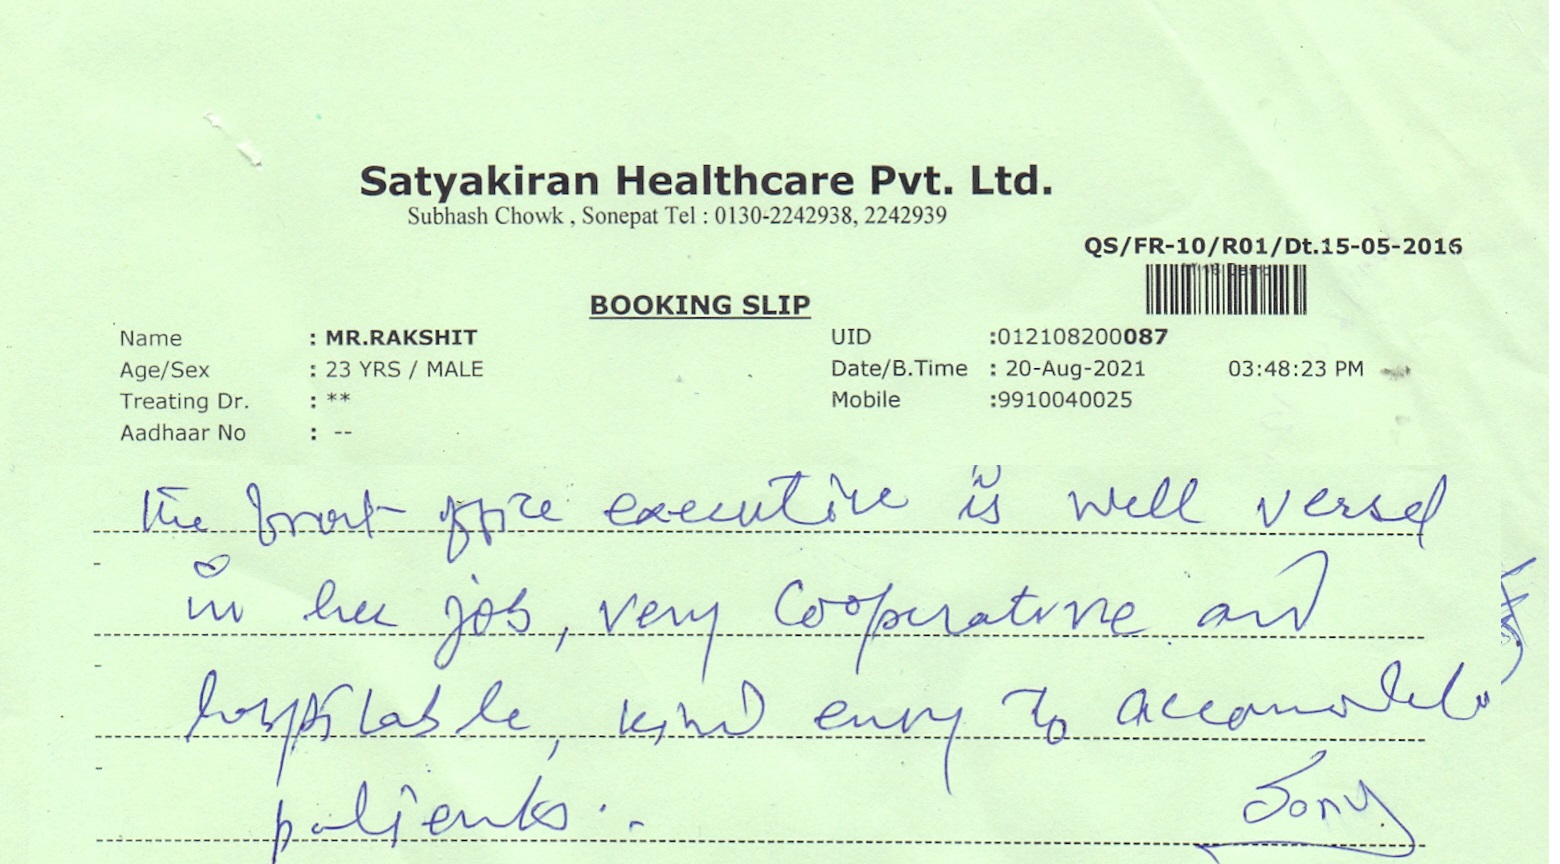 Satyakiran Healthcare Pvt. Ltd.
Subhash Chowk , Sonepat Tel : 0130-2242938, 2242939
QS/FR-10/R01/Dt.15-05-2016
BOOKING SLIP
Name : MR.RAKSHIT UID :012108200087
Age/Sex : 23 YRS / MALE Date/B.Time : 20-Aug-2021 03:48:23 PM
Treating Dr. : ** Mobile :9910040025
Aadhaar No : --
The front office executive is well versed
in her job, very Cooperative and
hospitable, kind enuy to accomodate
patients.
Sony